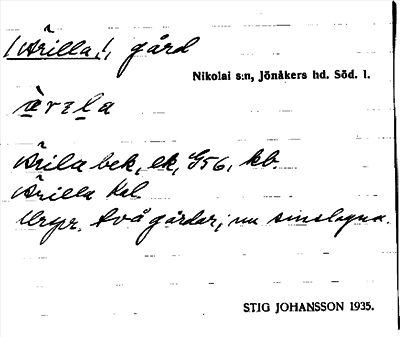 /Ärilla,/, gård
Nikolai s:n, Jönåkers hd. Söd. l.
Ärila bek, ek, G56, kb.
Ärilla
Urspr. två gårdar; nu sinslagna.
STIG JOHANSSON 1935.